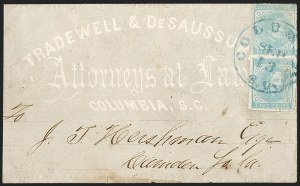 TRADEWELL & DeSAUSSU
Attorneys at La
COLUMBIA, S.C.
COLUMB
SEP
13
To
J. T. Hershman Esqr
Camden So. Ca.